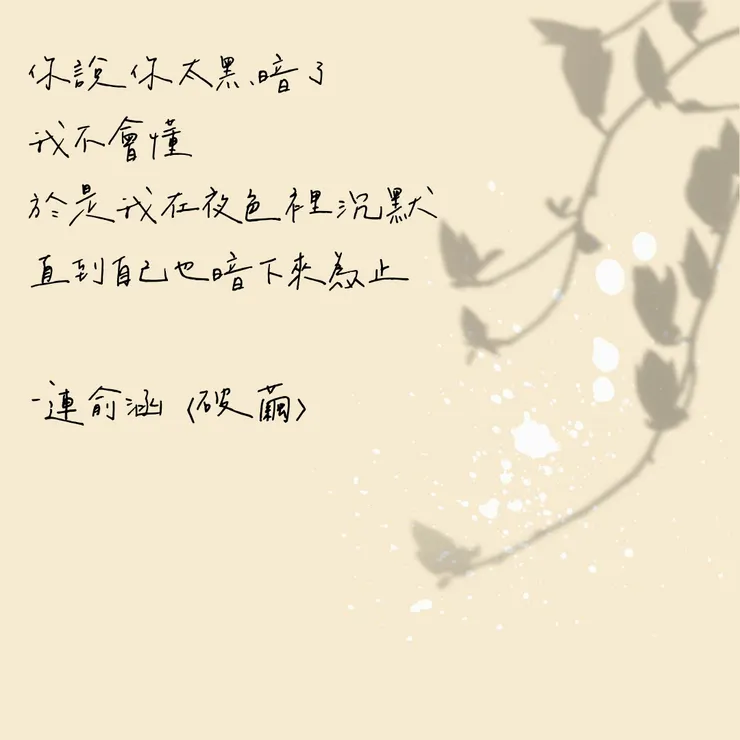 你說你太黑暗了
我不會懂
於是我在夜色裡沉默
直到自己也暗下來為止
-連俞涵〈破繭〉